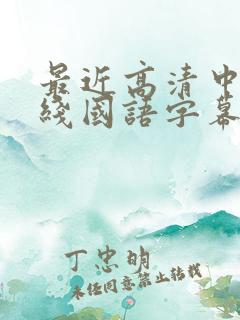 最近高清中
綫國語字幕
丁忠明
未经同意禁止转载